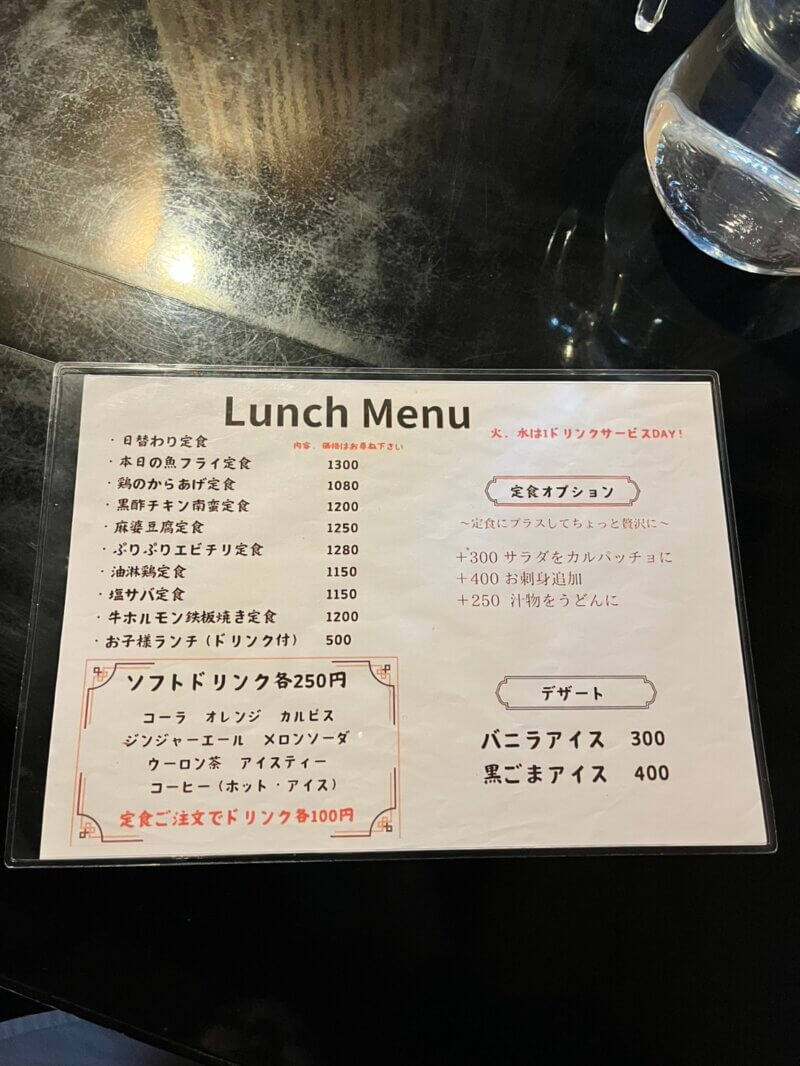 Lunch Menu
・日替わり定食 内容、価格はお尋ね下さい
・本日の魚フライ定食 1300
・鶏のからあげ定食 1080
・黒酢チキン南蛮定食 1200
・麻婆豆腐定食 1250
・ぷりぷりエビチリ定食 1280
・油淋鶏定食 1150
・塩サバ定食 1150
・牛ホルモン鉄板焼き定食 1200
・お子様ランチ(ドリンク付) 500
ソフトドリンク各250円
コーラ オレンジ カルピス
ジンジャーエール メロンソーダ
ウーロン茶 アイスティー
コーヒー(ホット・アイス)
定食ご注文でドリンク各100円
火、水は1ドリンクサービスDAY!
定食オプション
~定食にプラスしてちょっと贅沢に~
+300 サラダをカルパッチョに
+400 お刺身追加
+250 汁物をうどんに
デザート
バニラアイス 300
黒ごまアイス 400